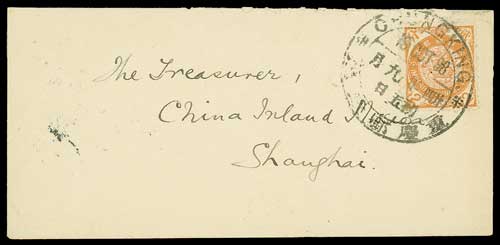 The Treasurer,
China Inland
Shanghai.
CHUNGKING
月
九
日
五
重慶